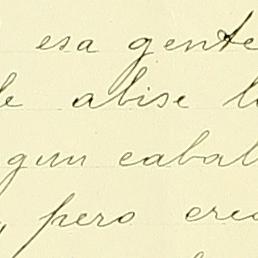 esa gente
le abise l
gun cabal
, pero crea